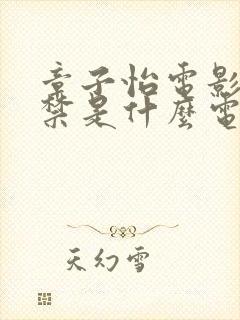 章子怡電影
禁是什麼電
天幻雪